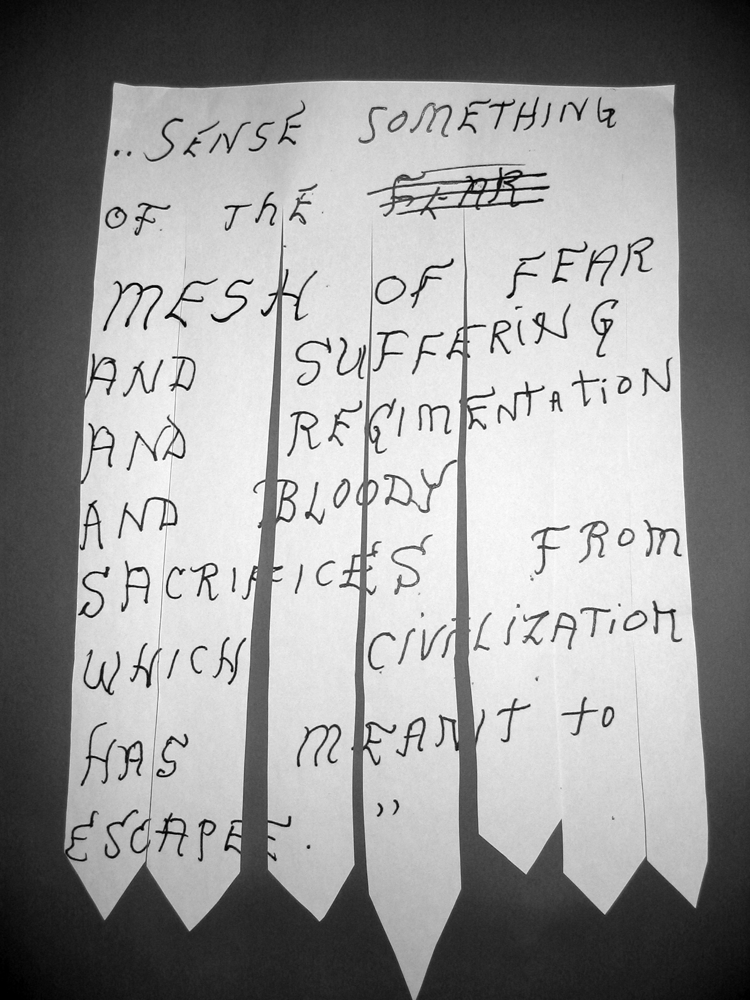 ..SENSE SOMETHING
OF THE FEAR
MESH OF FEAR
AND SUFFERING
AND REGIMENTATION
AND BLOODY
SACRIFICES FROM
WHICH CIVILIZATION
HAS MEANT TO
ESCAPE. ”